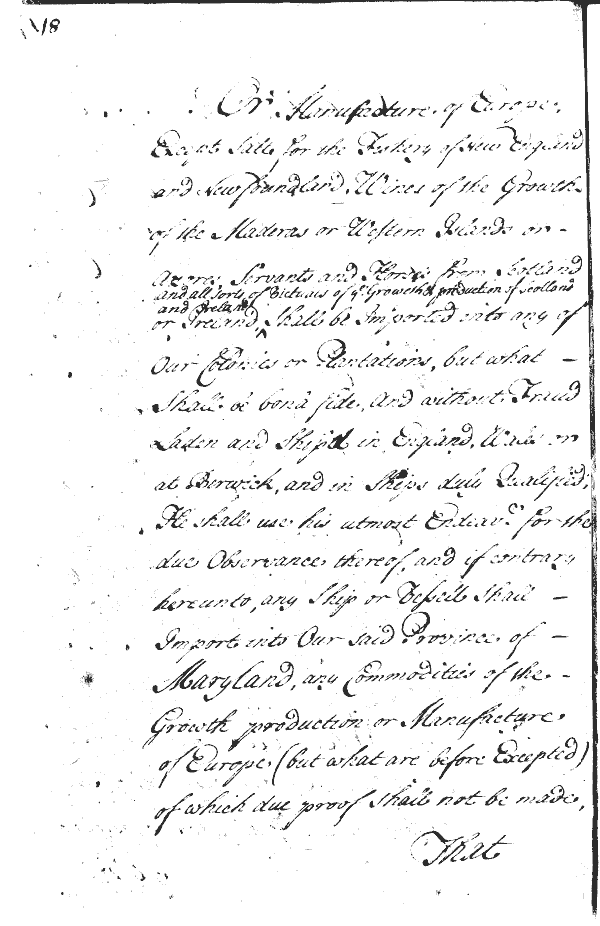 18
Or Manufacture of Europe,
Except Salt for the Fishery of New England
and Newfoundland, Wines of the Growth
of the Maderas or Western Islands or -
Azores, Servants and Horses from Scotland
and all sorts of Victuals of ye Growth & production of Scotland
and Ireland
or Ireland, ^ Shall be Imported into any of
Our Colonies or Plantations, but what -
Shall be bona fide, and without Fraud
Laden and Ship'd in England, Wales or
at Berwick, and in Ships duly Qualified,
He shall use his utmost Endeavrs for the
due Observance thereof, and if contrary
hereunto, any Ship or Vessell Shall -
Import into Our said Province of -
Maryland, any Commodities of the -
Growth production or Manufacture
of Europe (but what are before Excepted)
of which due proof Shall not be made,
That